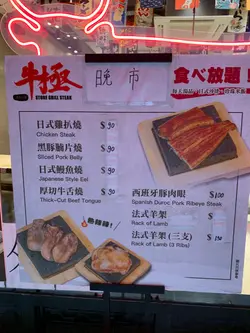 牛極
STONE GRILL STEAK
晚市
食べ放題
日式雞扒燒 $90
Chicken Steak
黑豚腩片燒 $90
Sliced Pork Belly
日式鰻魚燒 $90
Japanese Style Eel
厚切牛舌燒 $90
Thick-Cut Beef Tongue
西班牙豚肉眼 $100
Spanish Duroc Pork Ribeye Steak
法式羊架
Rack of Lamb
法式羊架 (三支)
Rack of Lamb (3 Ribs)
熱辣辣!